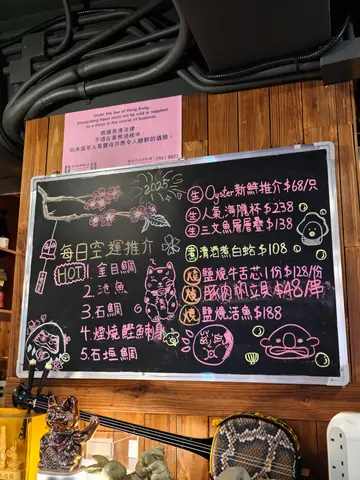 Under the law of Hong Kong,
intoxicating liquor must not be sold or supplied
to a minor in the course of business.
根據香港法律，
不得在業務過程中，
向未成年人售賣或供應令人醺醉的酒類。
2961 8823
2025
每日空運推介
HOT!
1. 金目鯛
2. 池魚
3. 石鯛
4. 煙燒鰹魚刺身
5. 石垣鯛
生 Oyster新鮮推介 $68/只
生 人氣海隗杯 $238
生 三文魚層層疊 $138
清酒煮白蛤 $108
燒 鹽燒牛舌芯1份 $128/份
燒 豚肉 $48/串
燒 鹽燒活魚 $188